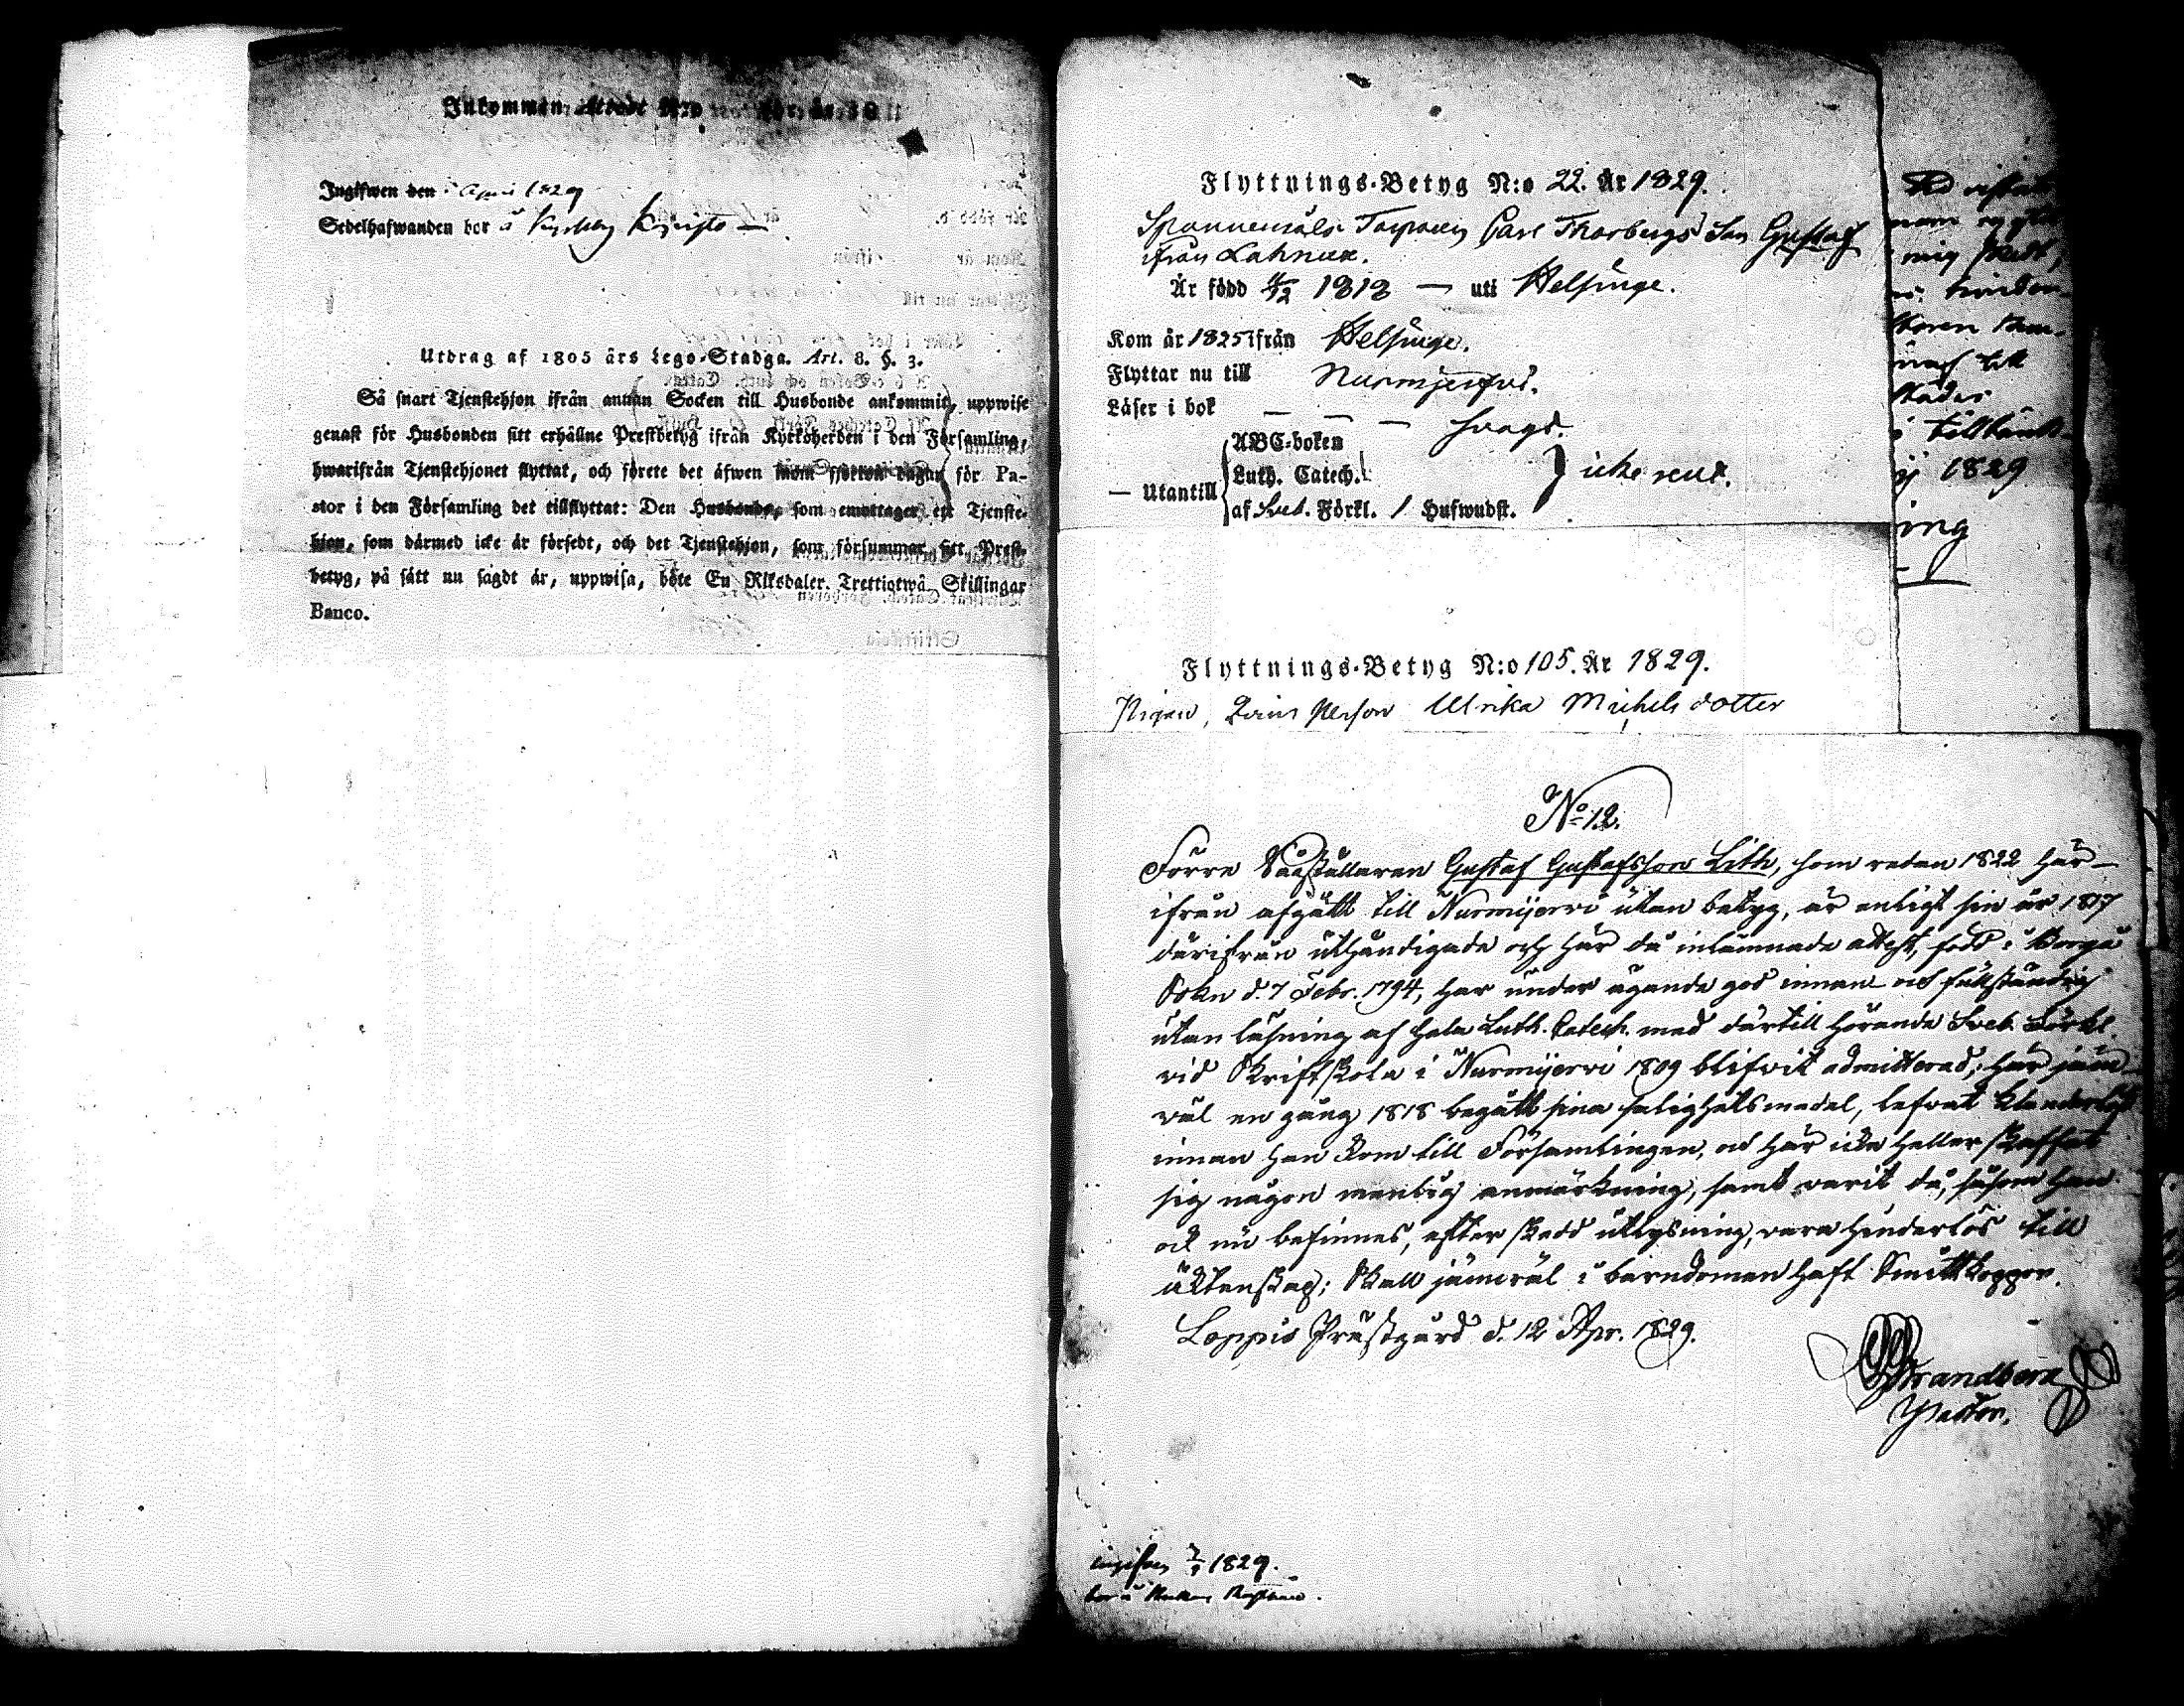 Inkommen Attest N:o för år 18
Ingifwen den April 1829
Sedelhafwanden bor å
Utdrag af 1805 års Lego-Stadga. Art. 8. §. 3.
Så snart Tjenstehjon ifrån annan Socken till Husbonde ankommit, uppwise
genast för Husbonden sitt erhållne Prestbetyg ifrån Kyrkoherden i den Församling,
hwarifrån Tjenstehjonet flyttat, och förete det äfwen inom fjorton dagar för Pa-
stor i den Församling det tillflyttat: Den Husbonde, som emottager ett Tjenste-
hjon, som därmed icke är försedt, och det Tjenstehjon, som försummar sitt Prest-
betyg, på sätt nu sagdt är, uppwisa, böte En Riksdaler Trettiotwå Skillingar
Banco.
Flyttnings-Betyg N:o 22. År 1829.
Carl Thorbergs Son Gustaf
ifrån Lahnus.
Är född 4/12 1818 — uti Helsinge.
Kom år 1825 ifrån Helsinge.
Flyttar nu till Nurmijerfvi.
Läser i bok — — — svagt.
— Utantill
ABC-boken
Luth. Catech.
icke rent.
af Sveb. Förkl. 1 Hufwudst.
Flyttnings-Betyg N:o 105. År 1829.
Pigan, Ulrika Michelsdotter
No 12.
Förre Gustaf Gustafsson Lith, som redan 1822 här-
ifrån afgått till Nurmijervi utan betyg, är enligt sin år 1817
därifrån uthändigade och här då inlämnade attest, född i Borgå
Sokn d. 7 Febr. 1794, har under ägande god innan- och fullständig
utan läsning af hela Luth. Catech. med därtill hörande Sveb. Förkl.
vid Skriftskola i Nurmijervi 1809 blifvit admitterad; här jäm-
väl en gång 1818 begått sina salighetsmedel, lefvat klanderlöst
innan han kom till Församlingen, och här icke heller skaffat
sig någon menlig anmärkning, samt varit då, såsom han
ock nu befinnes, efter skedd utlysning, vara hinderlös till
äktenskap; Skall jämväl i barndomen haft Smittkoppor.
Loppis Prästgård d. 12 Apr. 1829.
Strandberg
Pastor.
ingifven 1829.
bor å
1829
ing